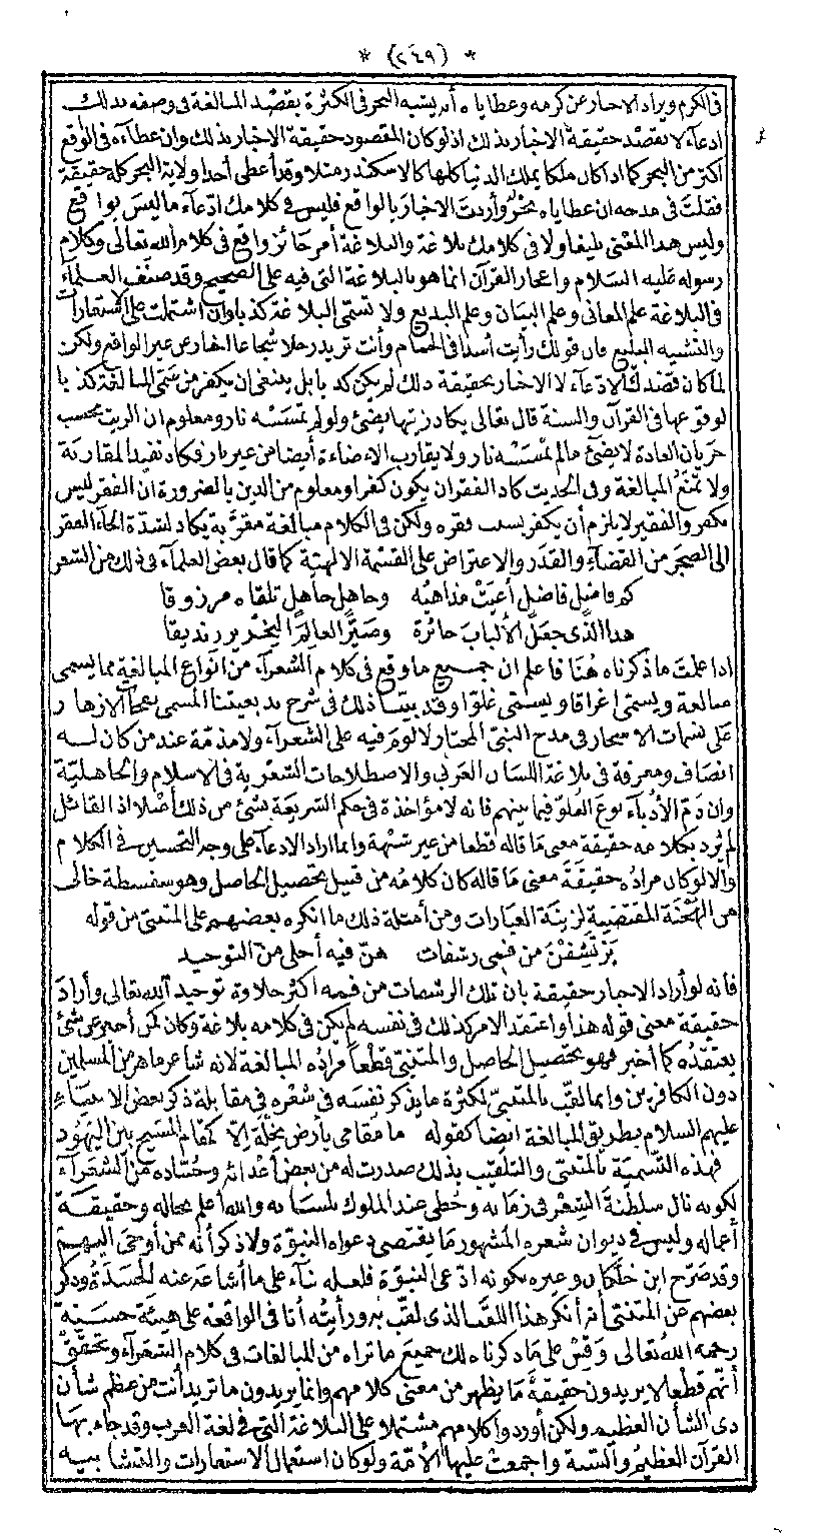 * (٢٤٩) *
في الكرم ويراد الاخبار عن كرمه وعطاياه أنه يشبه البحر في الكثرة بقصد المبالغة في وصفه بذلك
ادعاء لا بقصد حقيقة الاخبار بذلك اذ لو كان المقصود حقيقة الاخبار بذلك وان عطاءه في الواقع
أكثر من البحر كما اذا كان ملكا يملك الدنيا كلها كالاسكندر مثلا وقد أعطى أحدا ولاية البحر كله حقيقة
فقلت في مدحه ان عطاياه بحر وأردت الاخبار بالواقع فليس في كلامك ادعاء ما ليس بواقع
وليس هذا المعنى بليغا ولا في كلامك بلاغة والبلاغة أمر جائز واقع في كلام الله تعالى وكلام
رسوله عليه السلام واعجاز القرآن انما هو بالبلاغة التي فيه على الصحيح وقد صنف العلماء
في البلاغة علم المعاني وعلم البيان وعلم البديع ولا تسمى البلاغة كذبا وان اشتملت على الاستعارات
والتشبيه البليغ فان قولك رأيت أسدا في الحمام وأنت تريد رجلا شجاعا اخبار عن غير الواقع ولكن
لما كان قصدك الادعاء لا الاخبار بحقيقة ذلك لم يكن كذبا بل ينبغي ان يكفر من سمى المبالغة كذبا
لوقوعها في القرآن والسنة قال تعالى يكاد زيتها يضئ ولو لم تمسسه نار ومعلوم ان الزيت بحسب
جريان العادة لا يضئ ما لم تمسسه نار ولا يقارب الاضاءة أيضا من غير نار فكاد تفيد المقاربة
ولا تمنع المبالغة وفي الحديث كاد الفقر ان يكون كفرا ومعلوم من الدين بالضرورة ان الفقر ليس
بكفر والفقير لا يلزم أن يكفر بسبب فقره ولكن في الكلام مبالغة مقربة يكاد لشدة الجاء الفقر
الى الضجر من القضاء والقدر والاعتراض على القسمة الالهية كما قال بعض العلماء في ذلك من الشعر
كم فاضل فاضل أعيت مذاهبه وجاهل جاهل تلقاه مرزوقا
هذا الذي جعل الألباب حائرة وصير العالم النحرير زنديقا
اذا علمت ما ذكرناه هنا فاعلم ان جميع ما وقع في كلام الشعراء من انواع المبالغة مما يسمى
مبالغة ويسمى اغراقا ويسمى غلوا وقد بينا ذلك في شرح بديعيتنا المسمى بنفحات الازهار
على نسمات الاسحار في مدح النبي المختار لا لوم فيه على الشعراء ولا مذمة عند من كان له
انصاف ومعرفة في بلاغة اللسان العربي والاصطلاحات الشعرية في الاسلام والجاهلية
وان ذم الأدباء نوع الغلو فيما بينهم فانه لا مؤاخذة في حكم الشريعة بشئ من ذلك أصلا اذ القائل
لم يرد بكلامه حقيقة معنى ما قاله قطعا من غير شبهة وانما اراد الادعاء على وجه التحسين في الكلام
والا لو كان مراده حقيقة معنى ما قاله كان كلامه من قبيل تحصيل الحاصل وهو سفسطة خالي
من المقتضية لزينة العبارات ومن أمثلة ذلك ما انكره بعضهم على المتنبي من قوله
يترشفن من فمي رشفات هن فيه أحلى من التوحيد
فانه لو أراد الاخبار حقيقة بان تلك الرشفات من فمه اكثر حلاوة من توحيد الله تعالى وأراد
حقيقة معنى قوله هذا واعتقد الامر كذلك في نفسه لم يكن في كلامه بلاغة وكان كمن أخبر عن شئ
يعتقده كما أخبر فهو تحصيل الحاصل والمتنبي قطعا مراده المبالغة لانه شاعر ماهر من المسلمين
دون الكافرين وانما لقب بالمتنبي لكثرة ما يذكر نفسه في شعره في مقابلة ذكر بعض الانبياء
عليهم السلام بطريق المبالغة ايضا كقوله ما مقامي بأرض نخلة الا كمقام المسيح بين اليهود
فهذه التسمية بالمتنبي والتلقيب بذلك صدرت له من بعض أعدائه وحساده من الشعراء
لكونه نال سلطنة الشعر في زمانه وحظي عند الملوك بلسانه والله أعلم بحاله وحقيقة
أعماله وليس في ديوان شعره المشهور ما يقتضي دعواه النبوة ولا ذكر أنه ممن أوحى اليهم
وقد صرح ابن خلكان وغيره بكونه ادعى النبوة فلعله بناء على ما أشاعه عنه الحسدة وذكر
بعضهم عن المتنبي أنه أنكر هذا اللقب الذي لقب به ورأيته أنا في الواقعة على هيئة حسنة
رحمه الله تعالى وقس على ما ذكرناه لك جميع ما تراه من المبالغات في كلام الشعراء وتحقق
أنهم قطعا لا يريدون حقيقة ما يظهر من معنى كلامهم وانما يريدون ما تريد أنت من عظم شأن
ذي الشأن العظيم ولكن أوردوا كلامهم مشتملا على البلاغة التي في لغة العرب وقد جاء بها
القرآن العظيم والسنة واجمعت عليها الأمة ولو كان استعمال الاستعارات والتشابيه